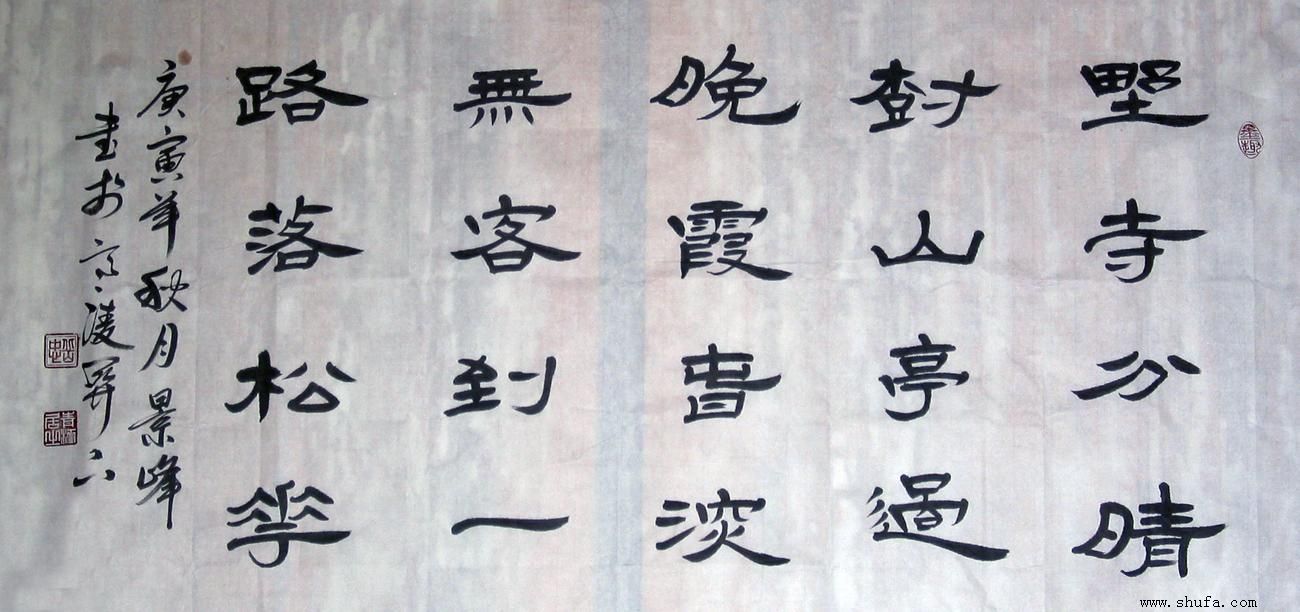 野寺分晴
樹山亭過
晚霞春深
無客到一
路落松華
庚寅年秋月景峰
書於高陵
www.shufa.com